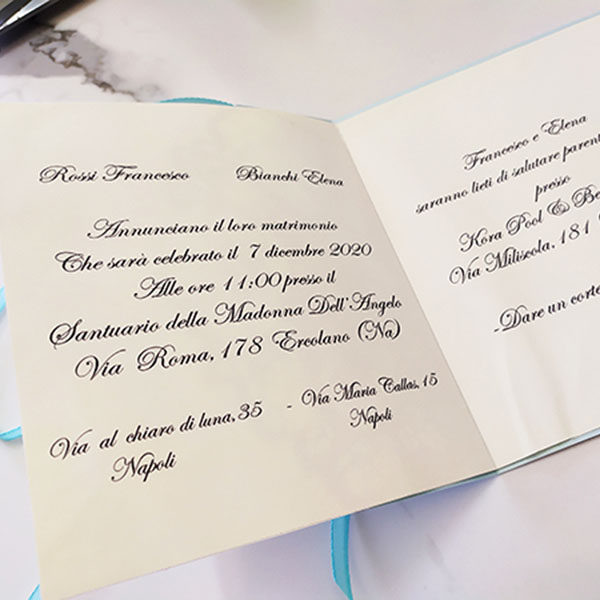 Rossi Francesco Bianchi Elena
Annunciano il loro matrimonio
Che sarà celebrato il 7 dicembre 2020
Alle ore 11:00 presso il
Santuario della Madonna Dell'Angelo
Via Roma, 178 Ercolano (Na)
Via al chiaro di luna, 35 - Via Maria Callas, 15
Napoli Napoli
Francesco e Elena
saranno lieti di salutare parent
presso
Kora Pool & Be
Via Miliscola, 181
-Dare un corte